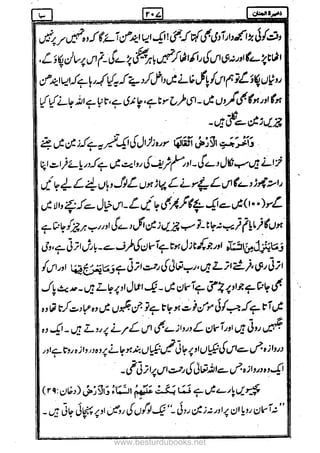 ذخیرۃ الجنان ۲۰۷ سبا
وقت کوئی بڑا سمجھ دار آدمی بھی کہتا کہ بھئی! ایک ایسا ایندھن آئے گا کہ وہ تمہیں سر پر نہیں
اٹھانا پڑے گا اور نہ ہی اس کی راکھ اٹھا کر تمہیں باہر پھینکنی پڑے گی۔ تم اس پر سالن پکاؤ گے،
روٹیاں پکاؤ گے تو ہم اس کو پاگل خانے میں داخل کر دیتے کہ یہ کیا کہہ رہا ہے کہ ایسا ایندھن
ہوگا اور ہوگا بھی گھروں میں۔ اسی طرح سونا ہے، چاندی ہے، تانبا ہے اللہ جانے کیا کیا
چیزیں زمین سے نکلتی ہیں۔
وَاَخْرَجَتِ الْاَرْضُ اَثْقَالَهَا سورہ زلزال کی ایک تفسیر یہ ہے کہ زمین میں جتنے
خزانے ہیں سب نکال دے گی۔ اور مسلم شریف کی روایت میں ہے کہ دریائے فرات اپنا
راستہ چھوڑ دے گا اس کے نیچے سونے کے پہاڑ ہوں گے لوگ وہاں لینے کے لیے جائیں
گے سو (۱۰۰) میں سے ایک بچے گا مگر پھر بھی جائیں گے۔ اس خیال سے کہ بچنے والا میں
ہوں گا فرمایا تم قریب نہ جانا۔ تو سب چیزیں زمین اگل دے گی اور رب ہر چیز کو جانتا ہے
وَمَا يَنْزِلُ مِنَ السَّمَآءِ اور جو کچھ نازل ہوتا ہے آسمان کی طرف سے۔ بارش اترتی ہے، وحی
اترتی رہی، فرشتے اترتے ہیں، رب تعالیٰ کی رحمت اترتی ہے وَمَا يَعْرُجُ فِيْهَا اور اس کو
بھی جانتا ہے جو اوپر چڑھتی ہے آسمان میں۔ نیک اعمال اوپر جاتے ہیں۔ حدیث پاک
میں آتا ہے کہ جب کوئی مومن فوت ہو جاتا ہے تو جن جگہوں میں وہ عبادت کرتا تھا وہ
جگہیں روتی ہیں اور آسمان کے دروازے بھی اس کے مرنے پر روتے ہیں۔ ایک وہ
دروازہ جس سے اس کی نیکیاں اوپر جاتی تھیں نیکیاں بند ہو جانے پر وہ دروازہ روتا ہے اور
ایک وہ دروازہ جس سے اللہ تعالیٰ کی رحمت اس پر اترتی تھی۔
پچیسویں پارے میں ہے فَمَا بَكَتْ عَلَيْهِمُ السَّمَآءُ وَالْاَرْضُ (دخان: ۲۹)
"نہ آسمان رویا ان پر اور نہ زمین روئی۔" نیک لوگوں کی روحیں اوپر پہنچائی جاتی ہیں۔
www.besturdubooks.net